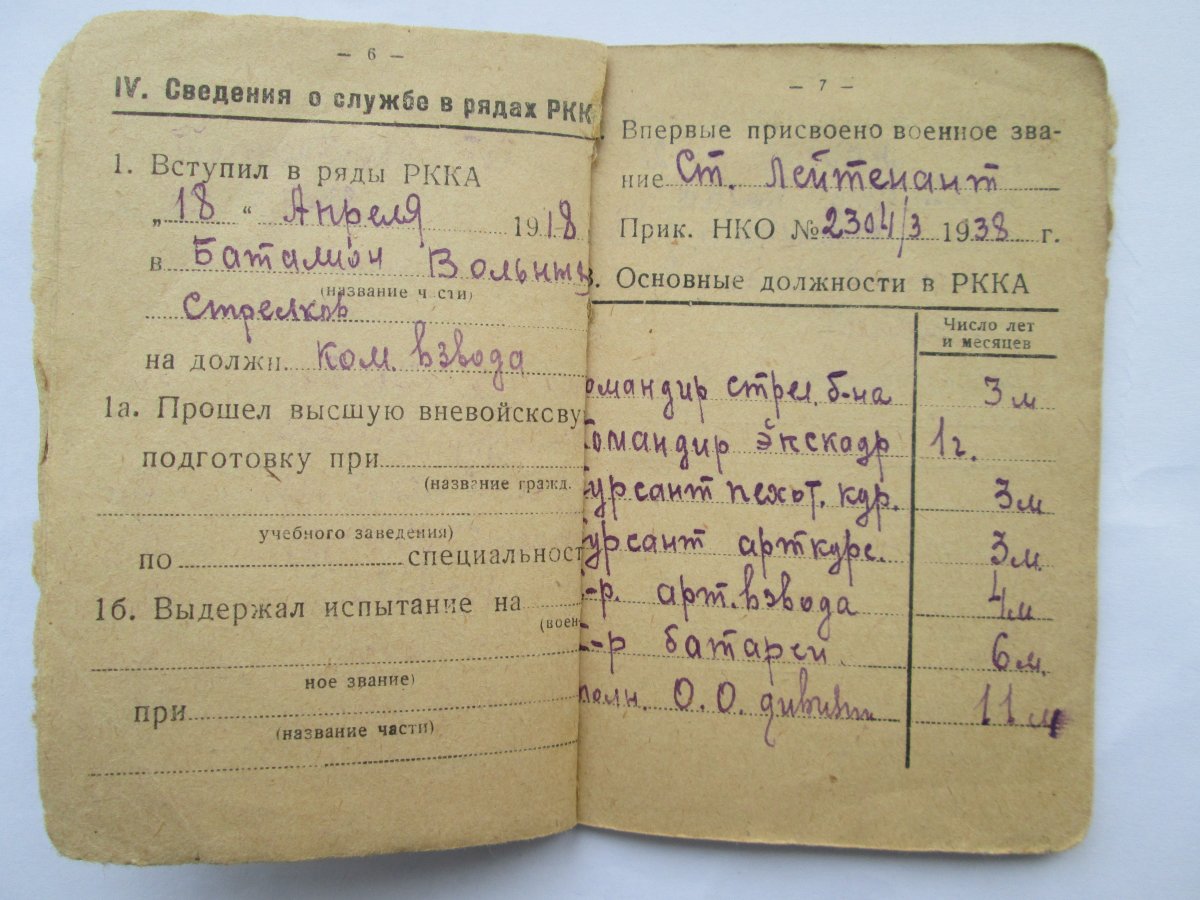 — 6 —
IV. Сведения о службе в рядах РКК
1. Вступил в ряды РККА
„18“ Апреля 1918
в Баталион Вольных
(название части)
Стрелков
на должн. ком. взвода
1а. Прошел высшую вневойскову
подготовку при
(название гражд.
учебного заведения)
по специальност
1б. Выдержал испытание на
(воен
ное звание)
при
(название части)
— 7 —
. Впервые присвоено военное зва-
ние Ст. Лейтенант
Прик. НКО № 2304/3 1938 г.
3. Основные должности в РККА
Число лет
и месяцев
омандир стрел. б-на 3 м
Командир Экскадр 1 г.
Курсант пехот. кдр. 3 м
Курсант арткурс. 3 м.
К-р. арт. взвода 4 м
К-р батареи 6 м.
полн. О. О. 11 м